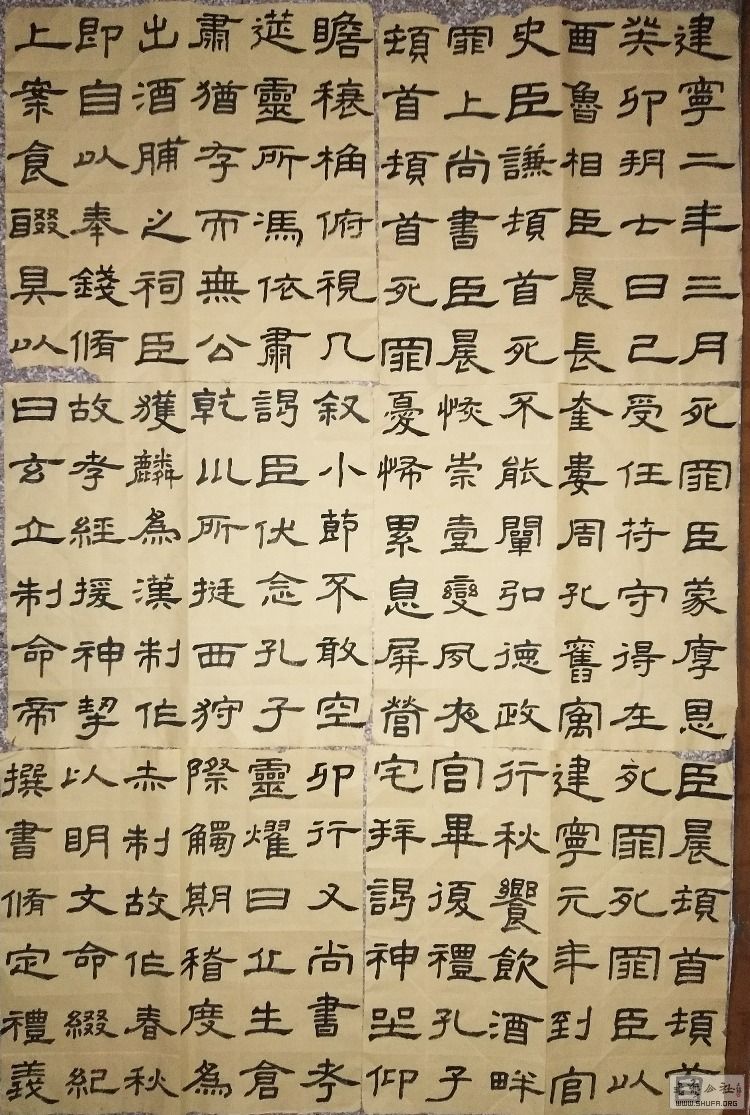 建寧二年三月
癸卯朔七日己
酉魯相臣晨長
史臣謙頓首死
罪上尚書臣晨
頓首頓首死罪
死罪臣蒙厚恩
受任符守得在
奎婁周孔舊寓
不能闡弘德政
恢崇壹變夙夜
憂怖累息屏營
臣晨頓首頓首
死罪死罪臣以
建寧元年到官
行秋饗飲酒畔
宮畢復禮孔子
宅拜謁神坐仰
瞻榱桷俯視几
筵靈所馮依肅
肅猶存而無公
出酒脯之祠臣
即自以奉錢脩
上案食醊具以
叙小節不敢空
謁臣伏念孔子
乾巛所挺西狩
獲麟為漢制作
故孝經援神挈
曰玄丘制命帝
卯行又尚書考
靈燿曰丘生倉
際觸期稽度為
赤制故作春秋
以明文命綴紀
撰書脩定禮義
WWW.SHUFA.ORG